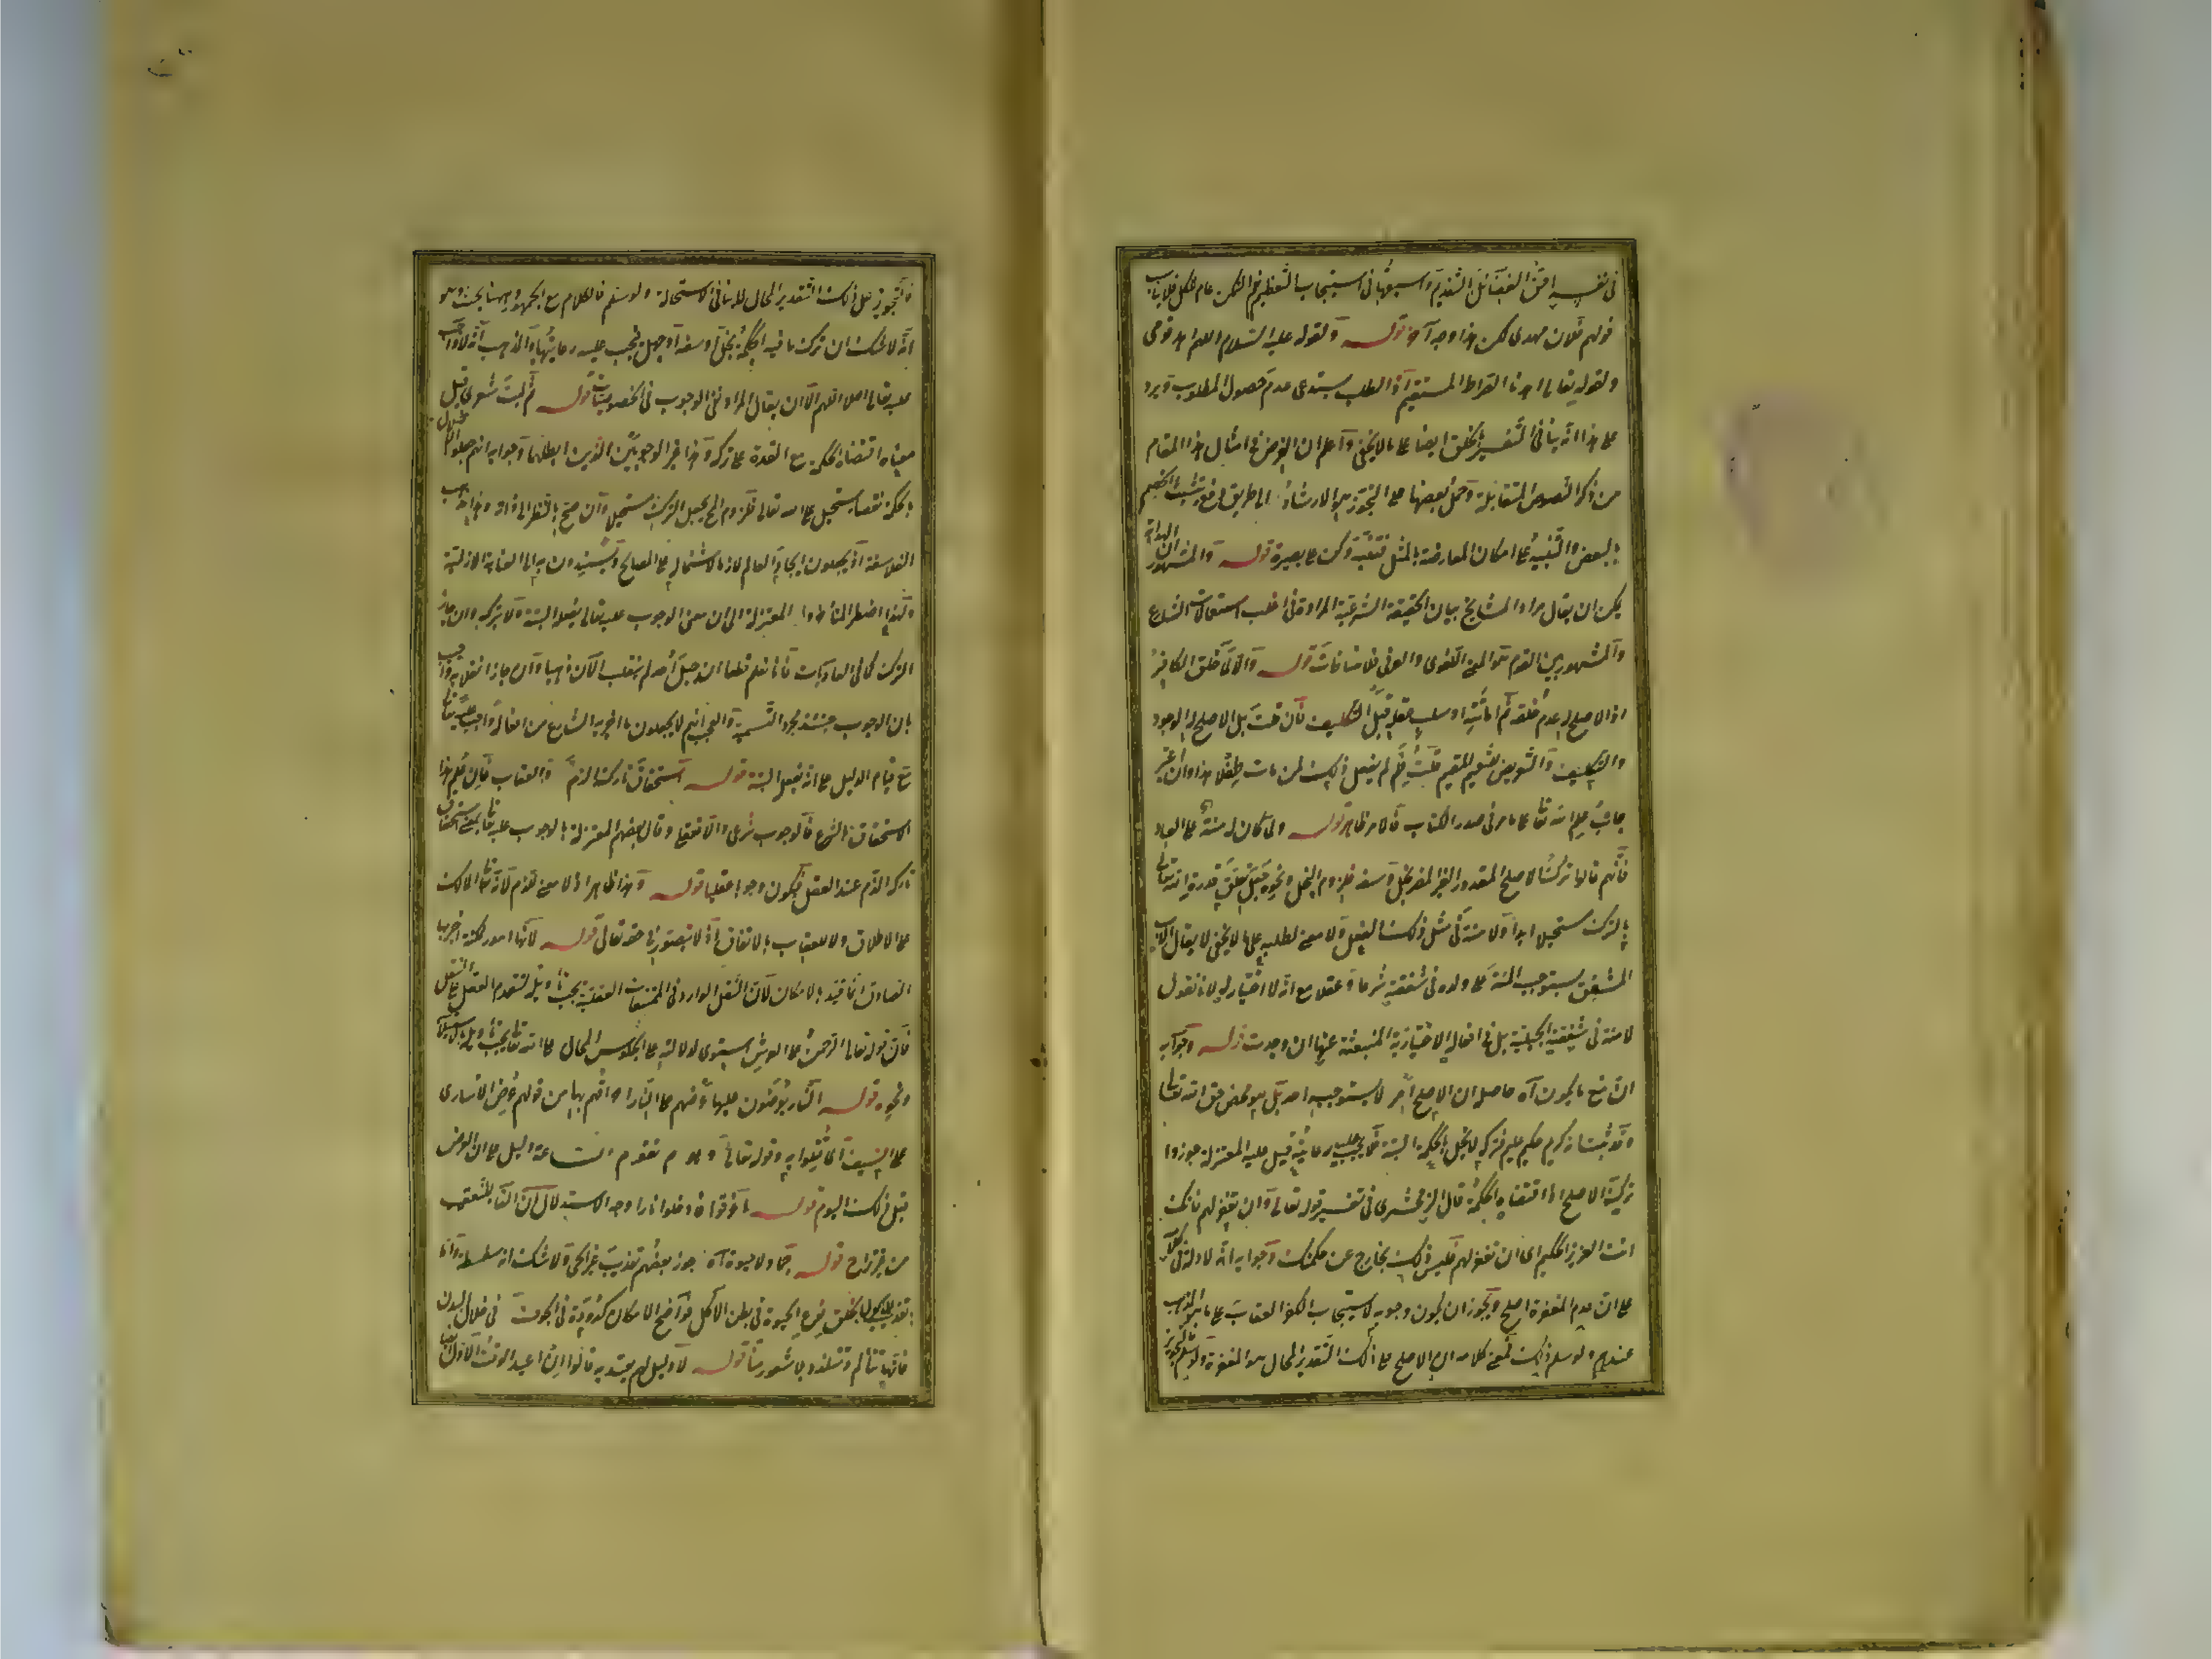 في نفسه احق الفضائل بالتقديم واسبقها في استيجاب التعظيم
قولهم فلان مهدى لكن هذا وجه آخر قوله ولقوله عليه السلام اللهم اهد قومى
ولقوله تعالى اهدنا الصراط المستقيم اذ الطلب يستدعى عدم حصول المطلوب ويرد
على هذا انه ينافى التفسير بخلق ايضا على ما لا يخفى واعلم ان الغرض في امثال هذا المقام
من ذكر النصوص المتقابلة وحمل بعضها على التجوز هو الارشاد الى طريق دفع تشبث الخصم
بالبعض والتنبيه على امكان المعارضة بالمثل فتنبه وكن على بصيرة قوله والمشهور ان الهداية
يمكن ان يقال مراد المشايخ بيان الحقيقة الشرعية المرادة في اغلب استعمالات الشارع
والمشهور بين القوم هو المعنى اللغوى والعرفى فلا منافاة قوله والا لما خلق الكافر
اذ الاصلح له عدم خلقه ثم اماتته او سلب عقله قبل التكليف فان قلت بل الاصلح له الوجود
والتكليف والتعريض للنعيم المقيم قلت فلم لم يفعل ذلك لمن مات طفلا هذا وان اعتبر
جانب علم الله تعالى على ما مر في صدر الكتاب فالامر ظاهر قوله ولما كان له منة على العباد
فانهم قالوا ترك الاصلح المقدور الغير المضر بخل وسفه فلزوم البخل ونحوه جعل تعلق قدرة الله تعالى
بالترك مستحيلا ابدا ولا منة في مثل ذلك الفعل ولا معنى لطلبه على ما لا يخفى لا يقال الاب
المشفق يستوجب المنة على ولده في شفقته شرعا وعقلا مع انه لا اختيار له لانا نقول
لا منة في شفقته الجبلية بل في افعاله الاختيارية المنبعثة عنها ان وجدت قوله وجوابه
ان منع ما يكون آه حاصله ان الاصلح امر لا يستوجبه احد بل هو محض حق الله تعالى
وقد ثبت انه كريم حكيم عليم فتركه لا يخل بالحكمة البتة فلا يجب عليه رعايته قيل عليه المعتزلة جوزوا
ترك الاصلح اذا اقتضاه الحكمة قال الزمخشرى في تفسير قوله تعالى وان تغفر لهم فانك
انت العزيز الحكيم اى ان تغفر لهم فليس ذلك بخارج عن حكمتك وجوابه انه لا دلالة في كلامه
على ان عدم المغفرة اصلح ويجوز ان يكون وجوبه لاستيجاب الكفر العقاب على ما هو المذهب
عندهم ولو سلم ذلك فمعنى كلامه ان الاصلح على ذلك التقدير المحال هو المغفرة
فالتجويز على ذلك التقدير المحال لا ينافى الاستحالة ولو سلم فالكلام مع الجمهور وههنا بحث وهو
انه لا شك ان ترك ما فيه الحكمة بخل او سفه او جهل فيجب عليه رعايتها والمذهب انه لا واجب
عليه تعالى اصلا اللهم الا ان يقال المراد نفى الوجوب في الخصوصيات قوله ثم ليت شعرى قيل
معناه اقتضاء الحكمة مع القدرة على تركه وهذا غير الوجوبين الذين ابطلهما وجوابه انهم جعلوا
بالحكمة نقصا يستحيل على الله تعالى فلزوم المح يجعل الترك مستحيلا وان صح بالنظر الى ذاته وهذا مذهب
الفلاسفة اذ يجعلون ايجاد العالم لازما لاشتماله على المصالح ويسندون به الى العناية الازلية
ولهذا اضطر المتأخرون المعتزلة الى ان معنى الوجوب عليه تعالى يفعله البتة ولا يتركه وان جاز
الترك كما في العاديات فانا نعلم قطعا ان جبل احد لم ينقلب الآن ذهبا وان جاز انقلابه واجيب
بان الوجوب حينئذ مجرد التسمية والعجب انهم لا يجعلون ما اخبر به الشارع من افعاله واجبا عليه تعالى
مع قيام الدليل على انه يفعله البتة قوله استحقاق تاركه الذم والعقاب فان علم هذا
الاستحقاق بالشرع فالوجوب شرعى والا فعقلى وقال بعض المعتزلة بالوجوب عليه تعالى بمعنى استحقاق
تاركه الذم عند العقل فيكون وجوبا عقليا قوله وهذا ظاهر اذ لا معنى للذم لانه تعالى المالك
على الاطلاق ولا للعقاب بالاتفاق اذ لا يتصور في حقه تعالى قوله لانها امور ممكنة اخبر بها
الصادق انما قيد بالامكان لان النقل الوارد في الممتنعات العقلية يجب تأويله لتقدم العقل على النقل
فان قوله تعالى الرحمن على العرش استوى لدلالته على الجلوس المحال على الله تعالى يجب تأويله بالاستيلاء
ونحوه قوله النار يعرضون عليها عرضهم على النار احراقهم بها من قولهم عرض الاسارى
على السيف اى قتلوا به وقوله تعالى ويوم تقوم الساعة دليل على ان العرض
قبل ذلك اليوم قوله اغرقوا فادخلوا نارا وجه الاستدلال ان الفاء للتعقيب
من غير تراخ قوله جماد لا حيوة آه جوز بعضهم تعذيب غير الحى ولا شك انه سفسطة واما
تعذيب المأكول بخلق نوع الحيوة في بطن الآكل فواضح الامكان كدودة في الجوف في خلال البدن
فانها تتألم وتتلذذ بلا شعور منا قوله لا دليل لهم يعتد به قالوا ان اعيد الوقت الاول